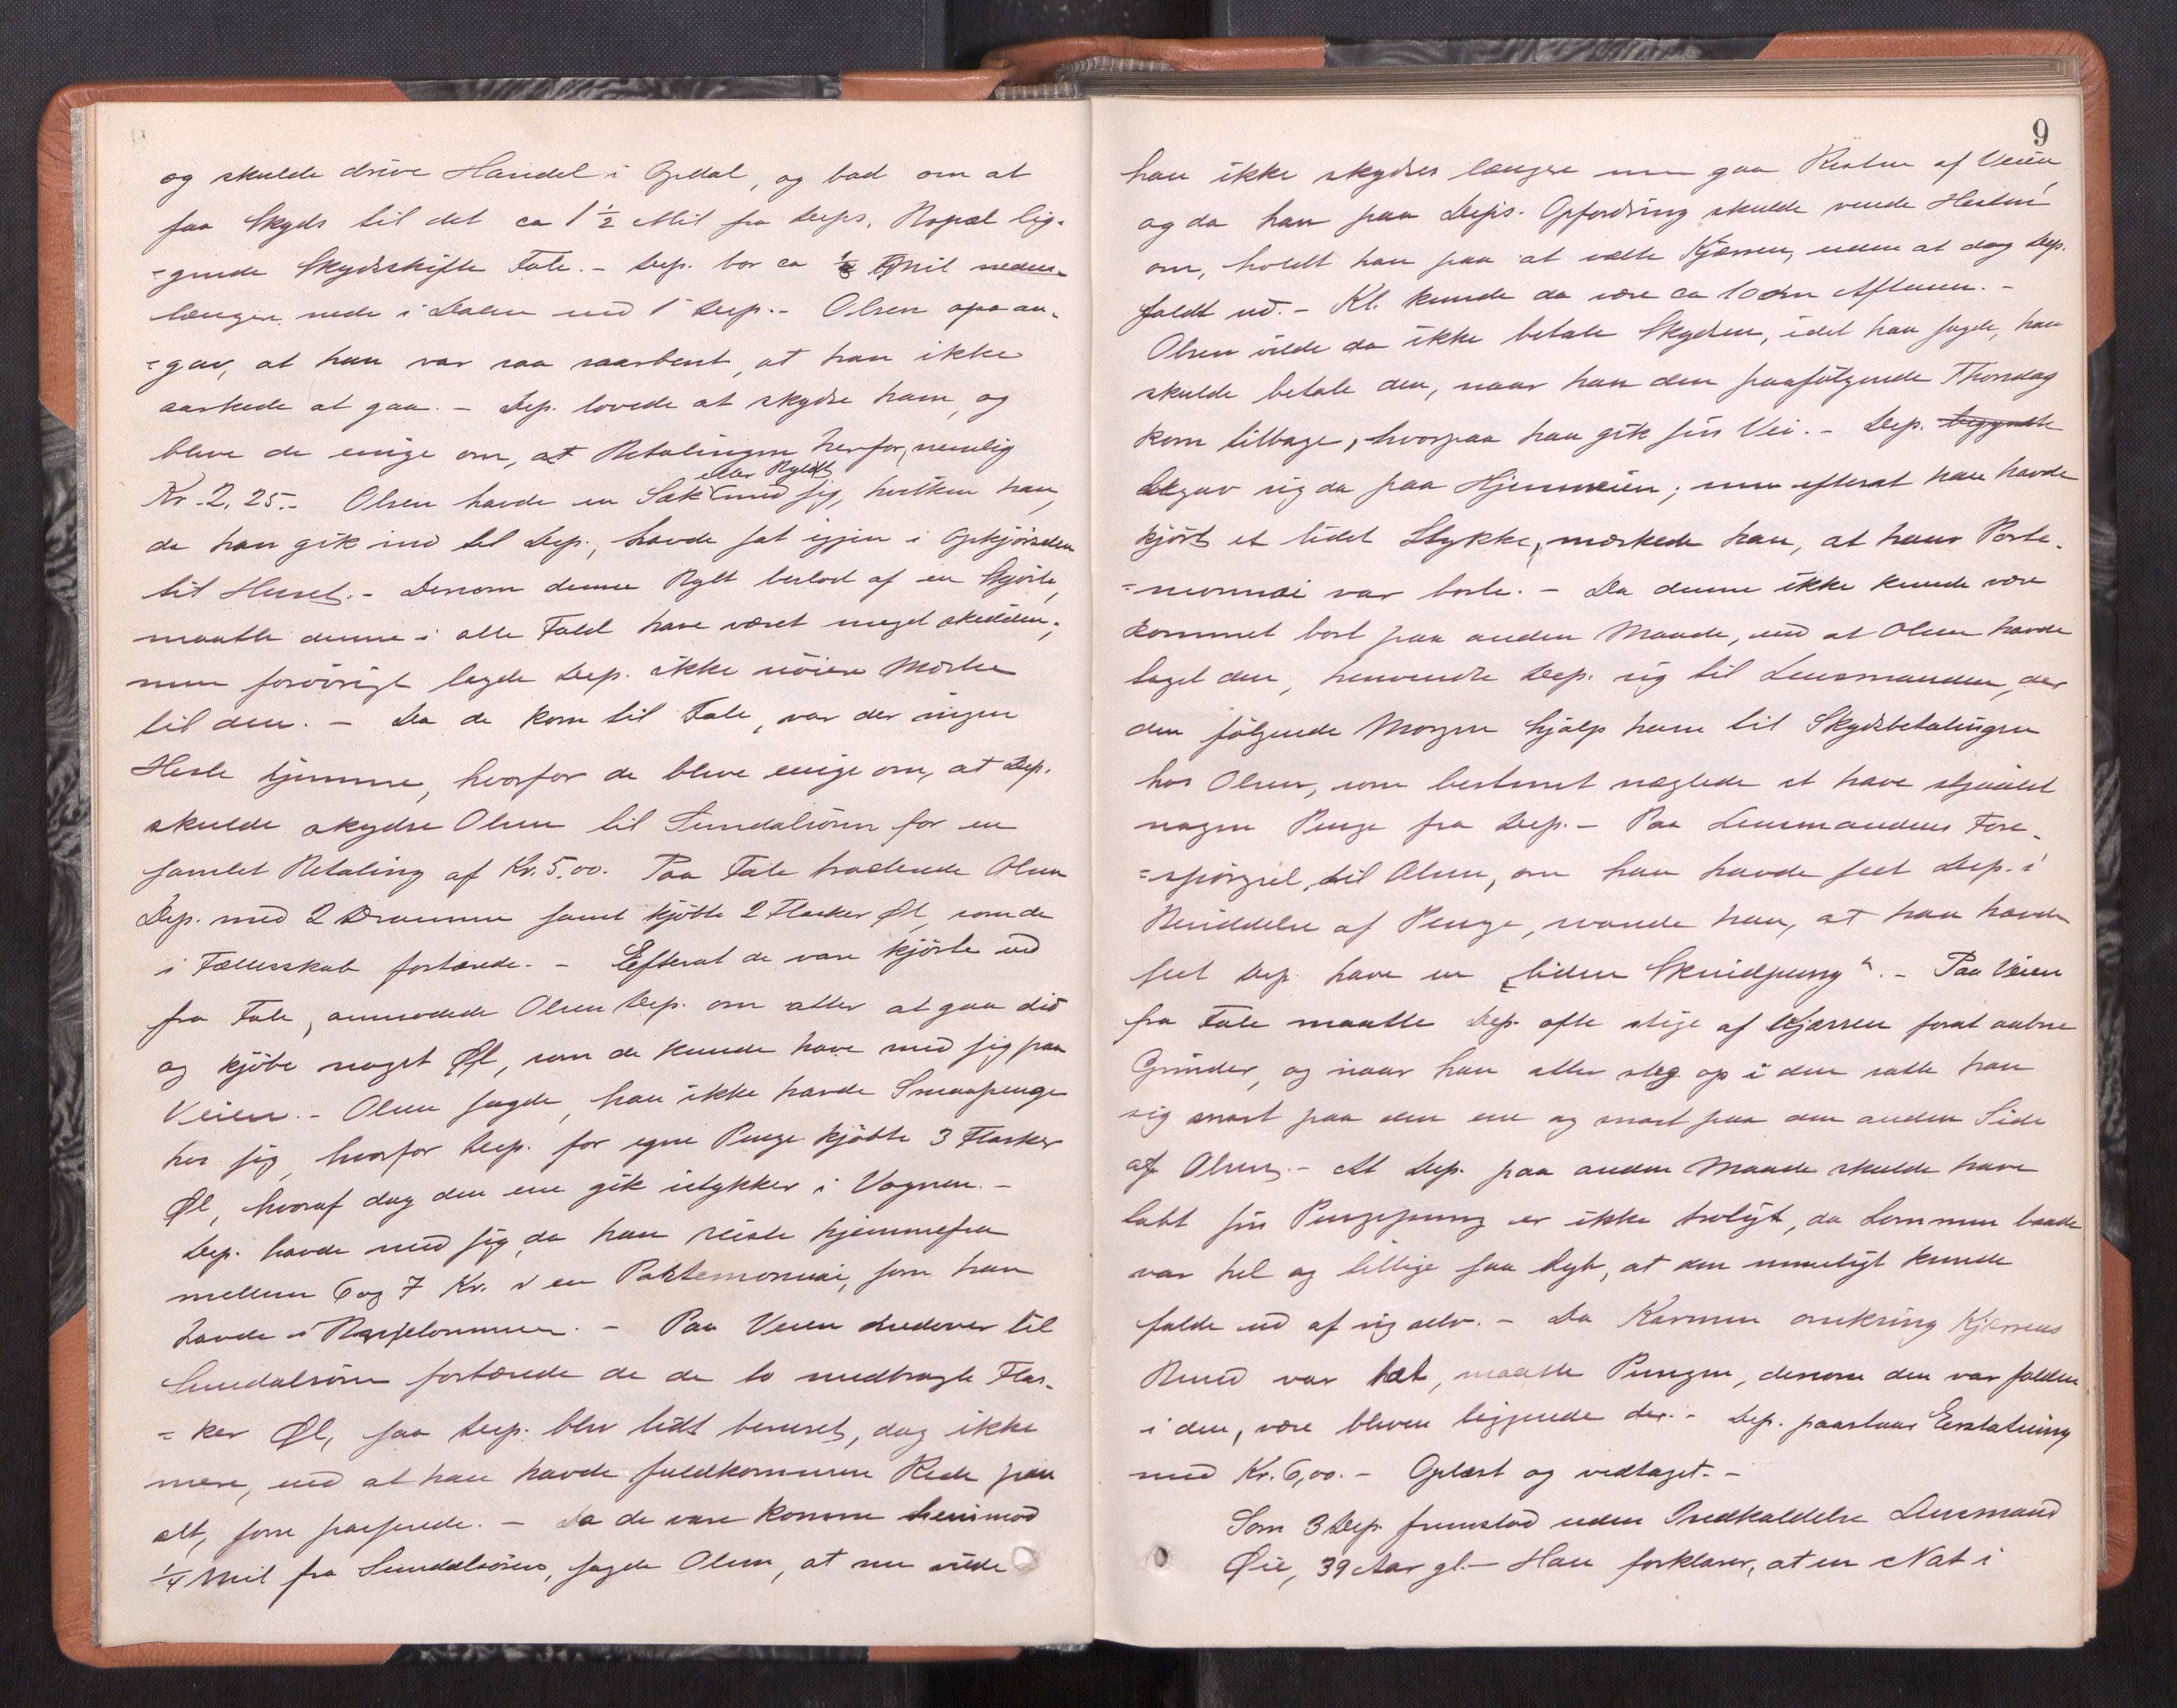 og skulde drive Handel i Opdal, og bad om at
faa Skyds til det ca 1 1/2 Mil fra Deps. Bopæl lig-
=gende Skydsskifte Fale. - Dep. bor ca 1/4 Mil neden-
længere nede i Dalen end 1 Dep. - Olsen opa an-
=gav, at han var saa saarbent, at han ikke
orkede at gaa. - Dep. lovede at skydse ham, og
bleve de enige om, at Betalingen herfor, nemlig
Kr. 2,25. - Olsen havde en Sæk eller Byldt med sig, hvilken han,
da han gik ind til Dep., havde sat igjen i Opkjørselen
til Huset. - Dersom denne Bylt bestod af en Skjorte,
maatte denne i alle Fald have været meget skidden;
men forøvrigt lagde Dep. ikke nøiere Mærke
til den. - Da de kom til Fale, var der ingen
Heste hjemme, hvorfor de bleve enige om, at Dep.
skulde skydse Olsen til Sundalsøren for en
samlet Betaling af Kr. 5,00. Paa Fale trakterede Olsen
Dep. med 2 Dramme samt kjøbte 2 Flasker Øl, som de
i Fællesskab fortærede. - Efterat de vare kjørte ud
fra Fale, anmodede Olsen Dep. om atter at gaa did
og kjøbe noget Øl, som de kunde have med sig paa
Veien. - Olsen sagde, han ikke havde Smaapenge
hos sig, hvorfor Dep. for egne Penge kjøbte 3 Flasker
Øl, hvoraf dog den ene gik istykker i Vognen. -
Dep. havde med sig, da han reiste hjemmefra
mellem 6 og 7 Kr. i en Portemonnai, som han
havde i Buxelommen. - Paa Veien nedover til
Sundalsøren fortærede de de to medbragte Flas-
=ker Øl, saa Dep. blev lidt beruset, dog ikke
mere, end at han havde fuldkommen Rede paa
alt, som passerede. - Da de vare komne henimod
1/4 Mil fra Sundalsøren, sagde Olsen, at nu vilde
9
han ikke skydses længere men gaa Resten af Veien
og da han paa Dep's. Opfordring skulde vende Hesten
om, holdt han paa at vælte Kjærren, uden at dog Dep.
faldt ud. - Kl. kunde da være ca 10 om Aftenen. -
Olsen vilde da ikke betale Skydsen, idet han sagde, han
skulde betale den, naar han den paafølgende Thorsdag
kom tilbage, hvorpaa han gik sin Vei. - Dep. begyndte
begav sig da paa Hjemveien; men efterat han havde
kjørt et lidet Stykke, mærkede han, at hans Porte-
=monnai var borte. - Da denne ikke kunde være
kommet bort paa anden Maade, end at Olsen havde
taget den, henvendte Dep. sig til Lensmanden, der
den følgende Morgen hjalp ham til Skydsbetalingen
hos Olsen, som bestemt nægtede at have stjaalet
nogen Penge fra Dep. - Paa Lensmandens Fore-
=spørgsel til Olsen, om han havde seet Dep. i
Besiddelse af Penge, svarede han, at han havde
seet Dep. have en "liden Skindpung". - Paa Veien
fra Fale maatte Dep. ofte stige af Kjærren forat aabne
Grinder, og naar han atter steg op i den satte han
sig snart paa den ene og snart paa den anden Side
af Olsen. - At Dep. paa anden Maade skulde have
tabt sin Pengepung er ikke troligt, da Lommen baade
var hel og tillige saa dyb, at den umuligt kunde
falde ud af sig selv. - Da Karmen omkring Kjærrens
Bund var tæt, maatte Pungen, dersom den var falden
i den, være bleven liggende der. - Dep. paastaar Erstatning
med Kr. 6,00. - Oplæst og vedtaget. -
Som 3 Dep. fremstod uden Indkaldelse Lensmand
Øie, 39 Aar gl. - Han forklarer, at en Nat i